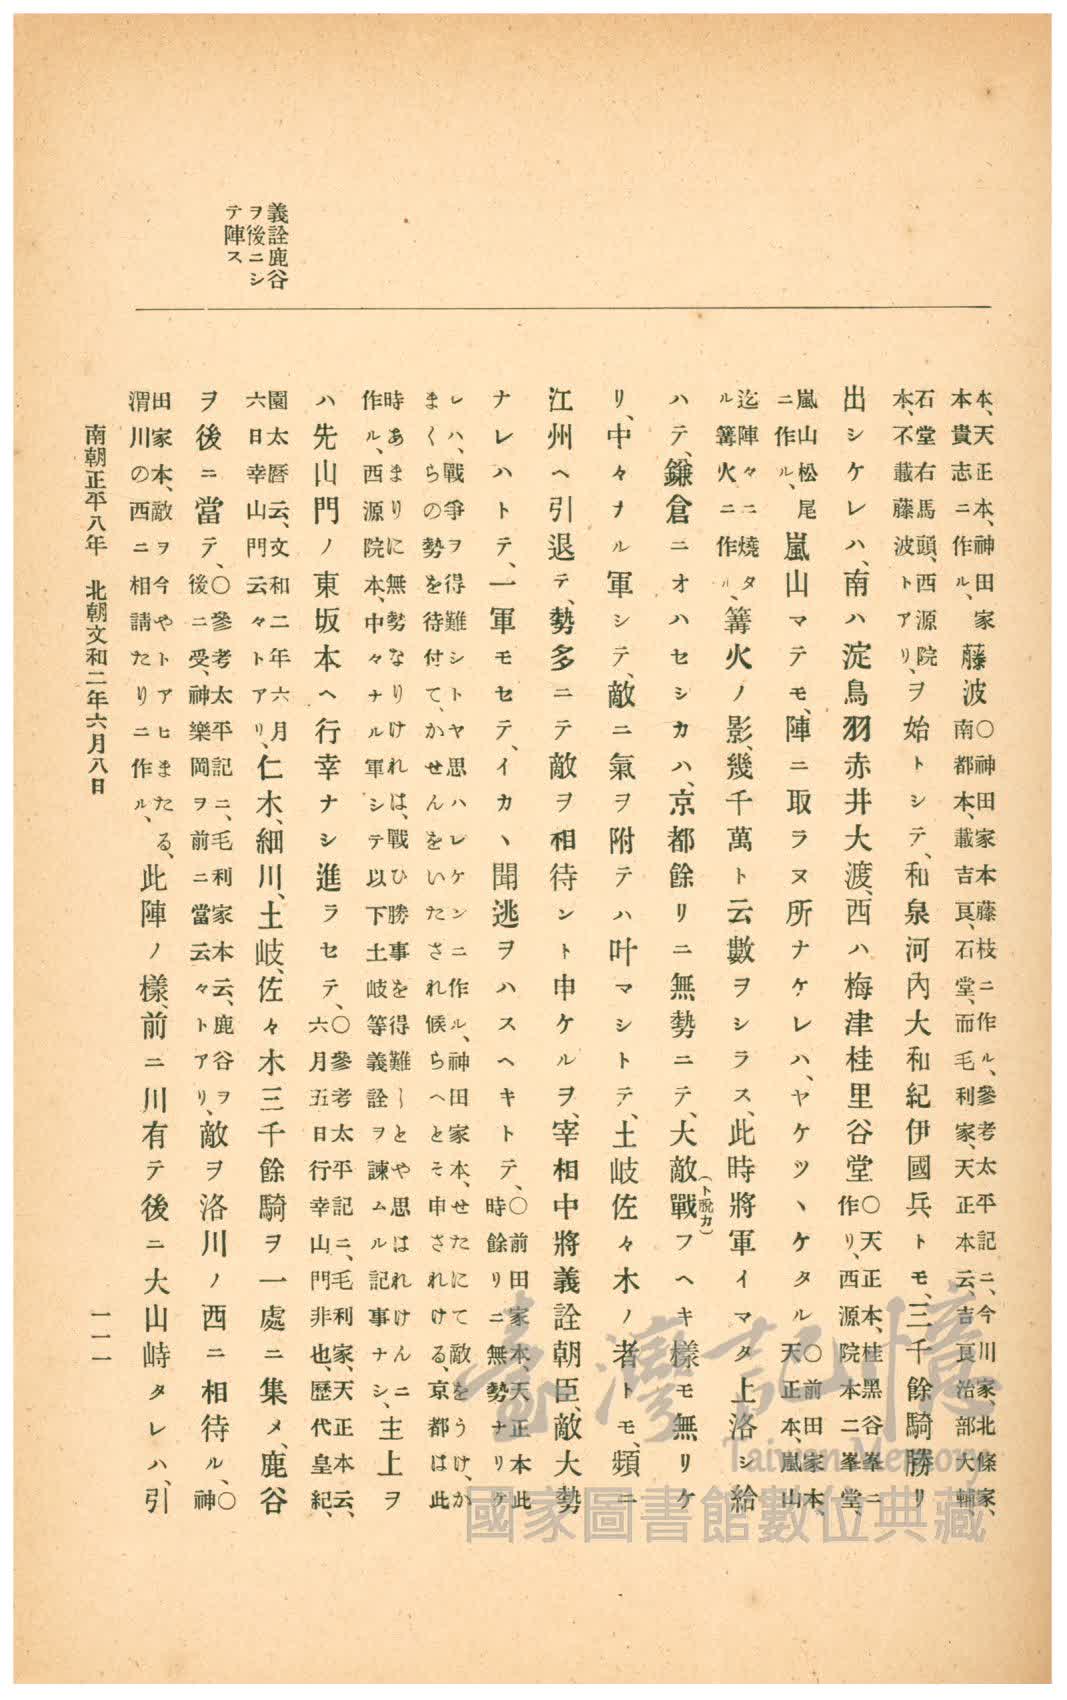 義詮鹿谷
ヲ後ニシ
テ陣ス
本、天正本、神田家
本貴志ニ作ル、
藤波
〇神田家本藤枝ニ作ル、參考太平記ニ、今川家、北條家、
南都本、載吉良、石堂、而毛利家、天正本云、吉良治部大輔、
石堂右馬頭、西源院
本、不載藤波トアリ、
ヲ始トシテ、和泉河內大和紀伊國兵トモ、三千餘騎勝リ
出シケレハ、南ハ淀鳥羽赤井大渡、西ハ梅津桂里谷堂
〇天正本、桂黑谷峯ニ
作リ、西源院本二峯堂、
嵐山松尾
ニ作ル、
嵐山マテモ、陣ニ取ラヌ所ナケレハ、ヤケツヽケタル
〇前田家本、
天正本、嵐山
迄陣々ニ燒タ
ル篝火ニ作ル、
篝火ノ影、幾千萬ト云數ヲシラス、此時將軍イマタ上洛シ給
ハテ、鎌倉ニオハセシカハ、京都餘リニ無勢ニテ、大敵(ト脫カ)戰フヘキ樣モ無リケ
リ、中々ナル軍シテ、敵ニ氣ヲ附テハ叶マシトテ、土岐佐々木ノ者トモ、頻ニ
江州ヘ引退テ、勢多ニテ敵ヲ相待ント申ケルヲ、宰相中將義詮朝臣、敵大勢
ナレハトテ、一軍モセテ、イカヽ聞逃ヲハスヘキトテ、
〇前田家本、天正本此
時餘リニ無勢ナリケ
レハ、戰爭ヲ得難シトヤ思ハレケンニ作ル、神田家本、せたにて敵をうけ、か
まくらの勢を待付て、かせんをいたされ候らへとそ申されける、京都は此
時あまりに無勢なりけれは、戰ひ勝事を得難しとや思はれけんニ
作ル、西源院本、中々ナル軍シテ以下土岐等義詮ヲ諫ムル記事ナシ、
主上ヲ
ハ先山門ノ東坂本ヘ行幸ナシ進ラセテ、
〇參考太平記ニ、毛利家、天正本云、
六月五日行幸山門非也、歷代皇紀、
園太曆云、文和二年六月
六日幸山門云々トアリ、
仁木、細川、土岐、佐々木三千餘騎ヲ一處ニ集メ、鹿谷
ヲ後ニ當テ、
〇參考太平記ニ、毛利家本云、鹿谷ヲ
後ニ受、神樂岡ヲ前ニ當云々トアリ、
敵ヲ洛川ノ西ニ相待ル、
〇神
田家本、敵ヲ今やトアヒまたる、
渭川の西ニ相請たりニ作ル、
此陣ノ樣、前ニ川有テ後ニ大山峙タレハ、引
南朝正平八年　北朝文和二年六月八日
一一一
臺灣記憶
Taiwan Memory
國家圖書館數位典藏